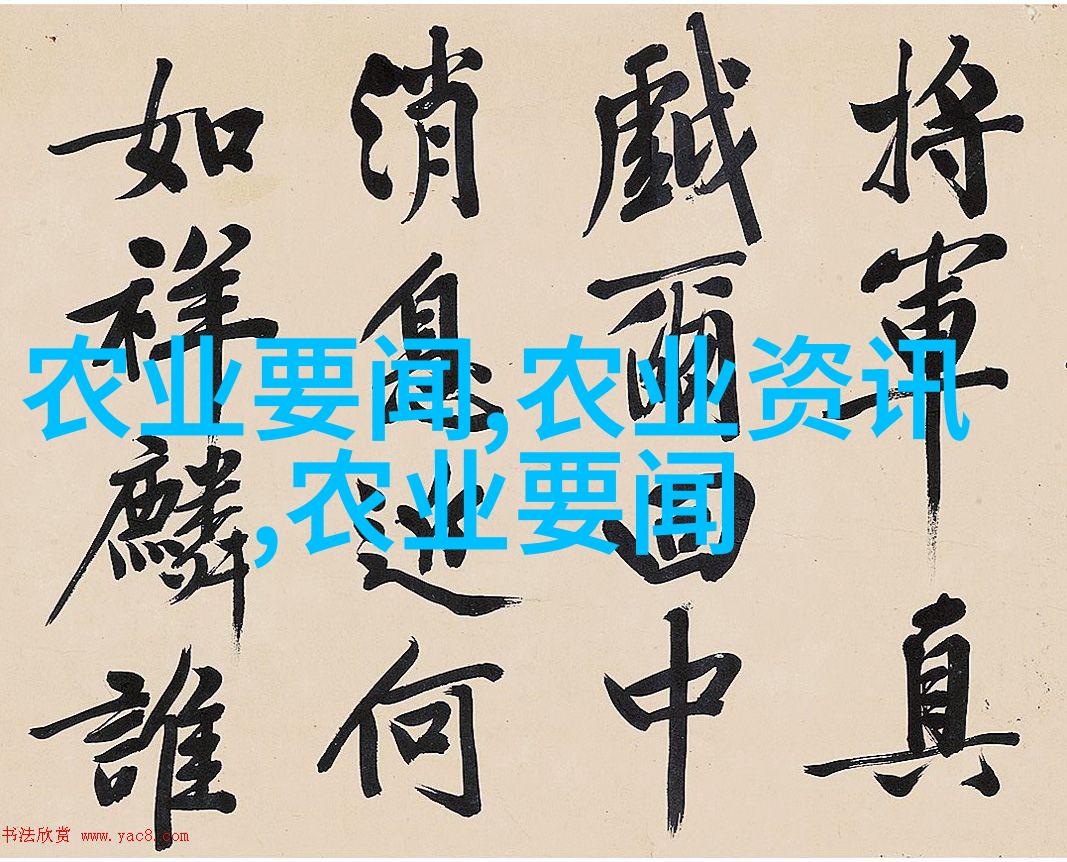 将軍真
戯爾回中
消息何
如祥麟誰
农业要闻,农业资讯
,农业要闻
书法欣赏 www.yac8.com